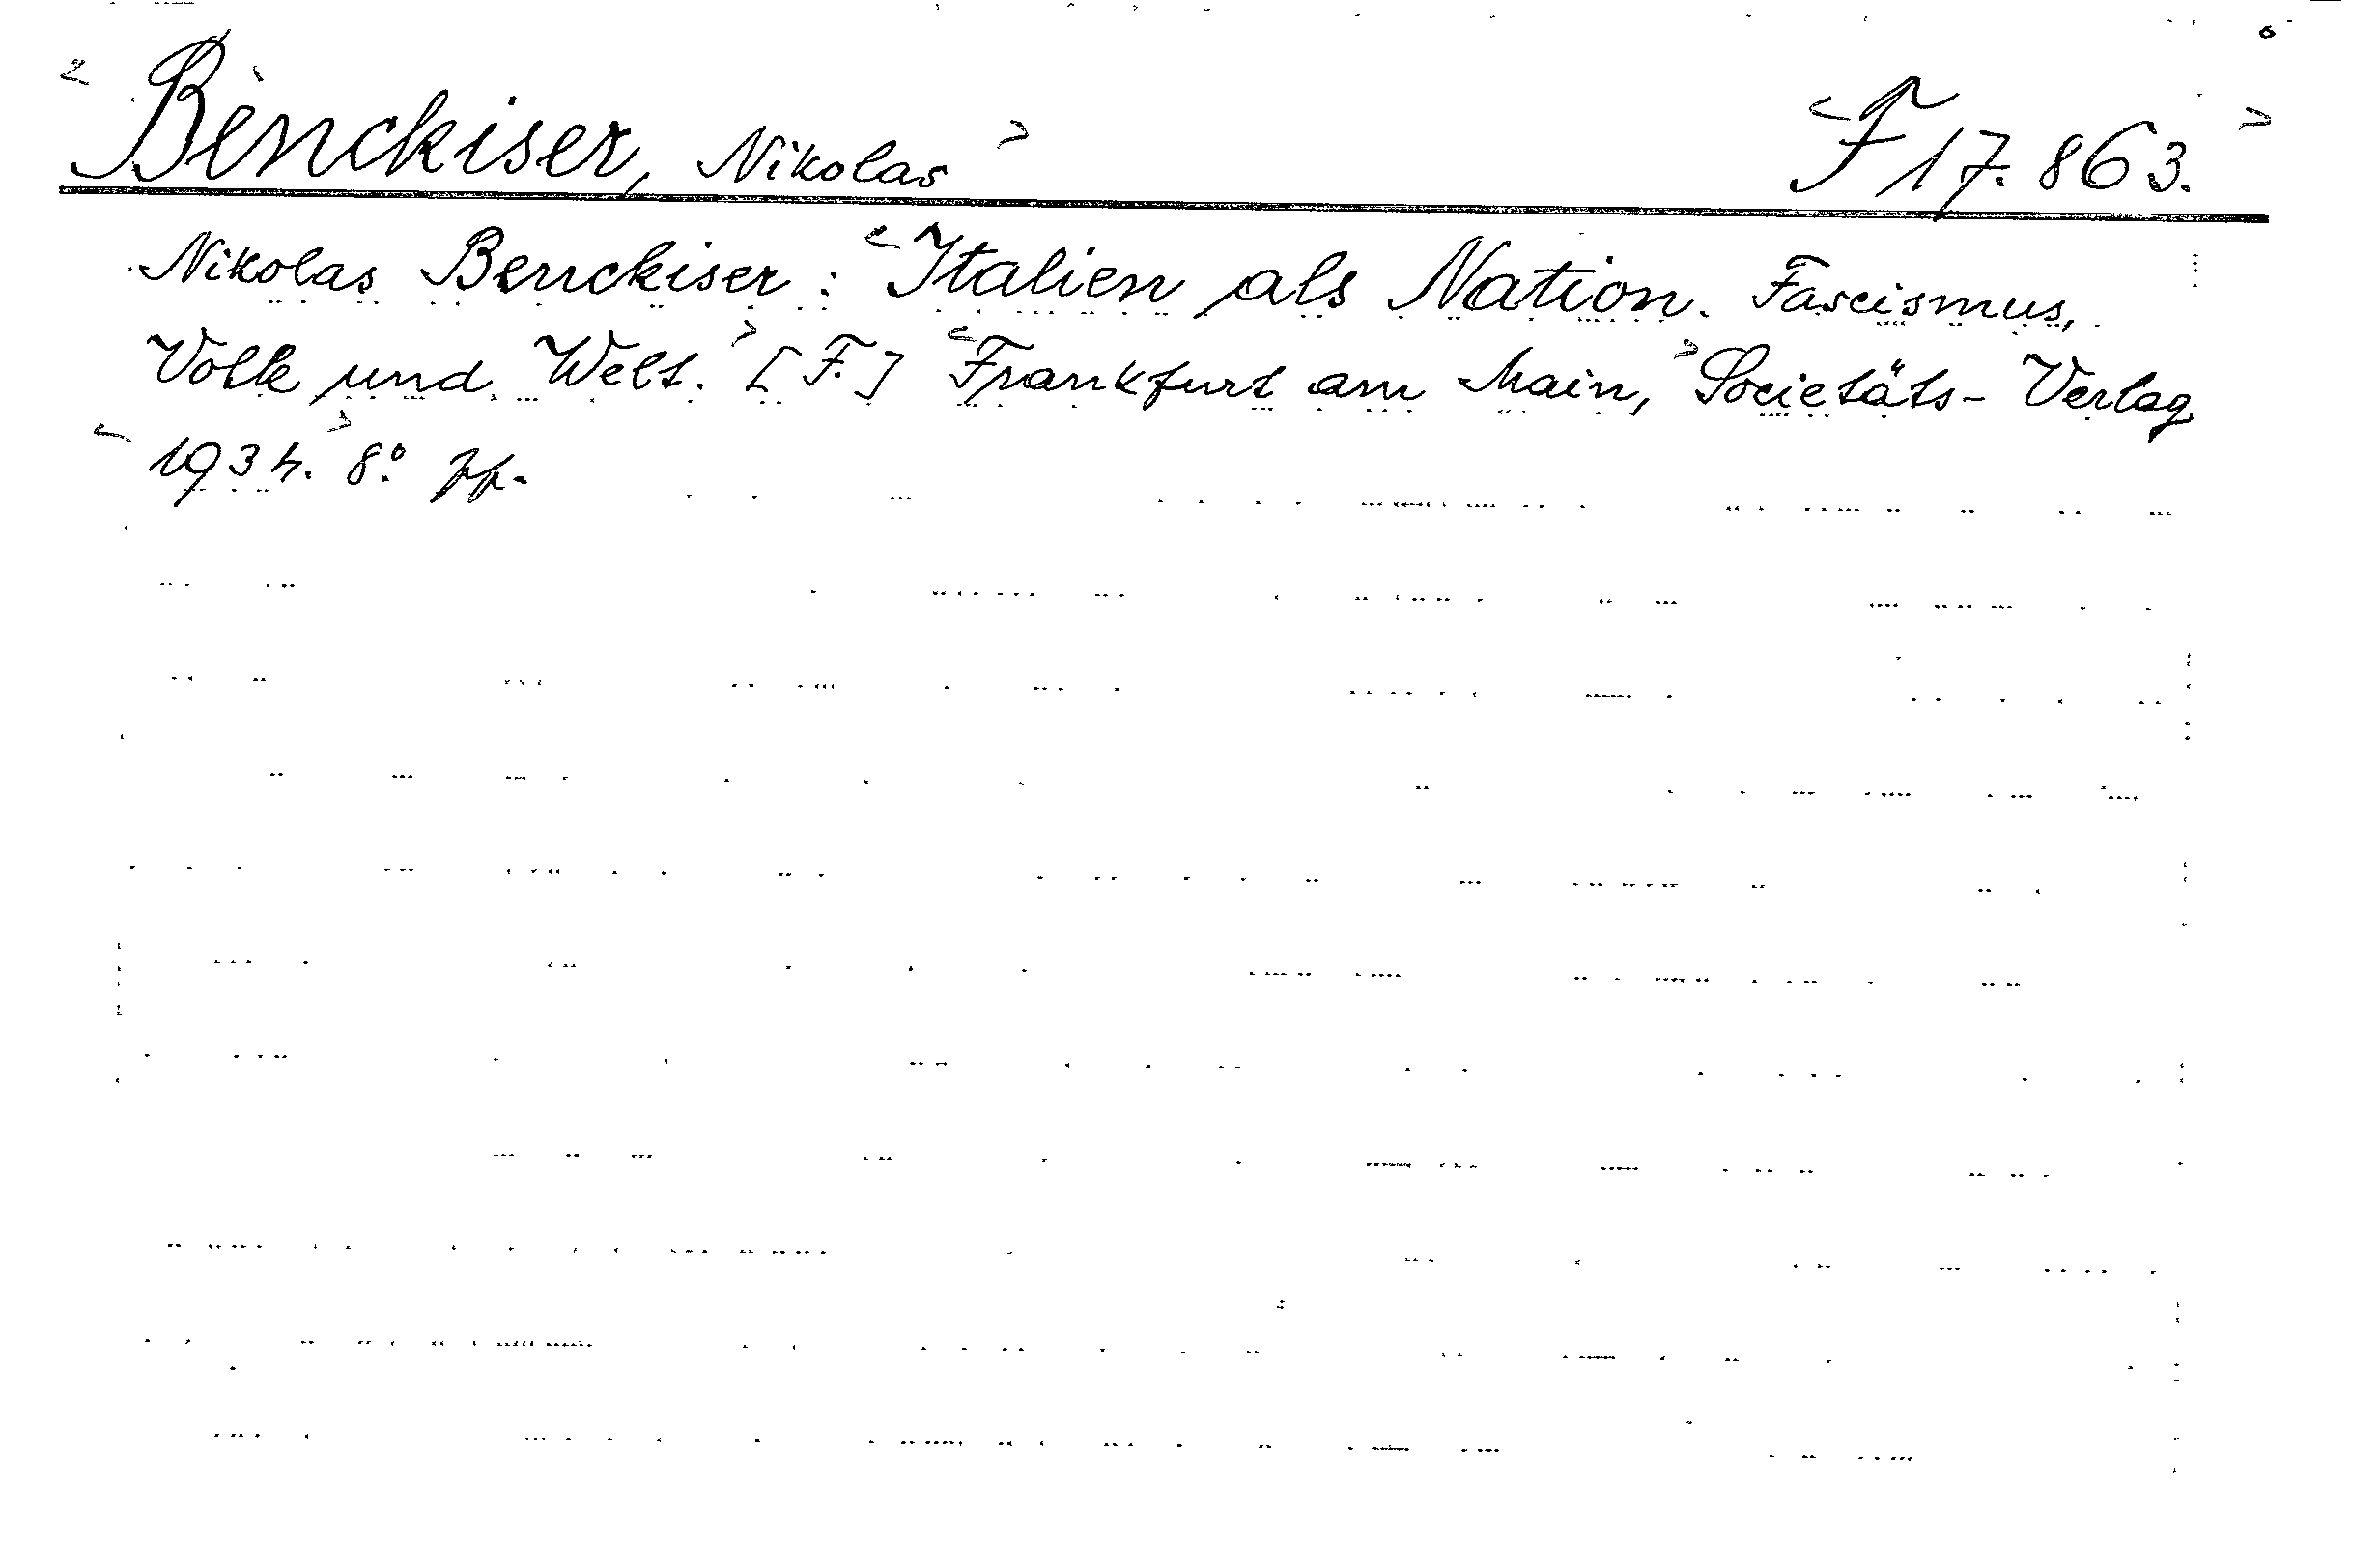 <Benckiser, Nikolas> <F 17.863.>
Nikolas Benckiser: <Italien als Nation. Fascismus,
Volk und Welt.> [F.] <Frankfurt am Main,> Societäts-Verlag
<1934.> 8° pp.